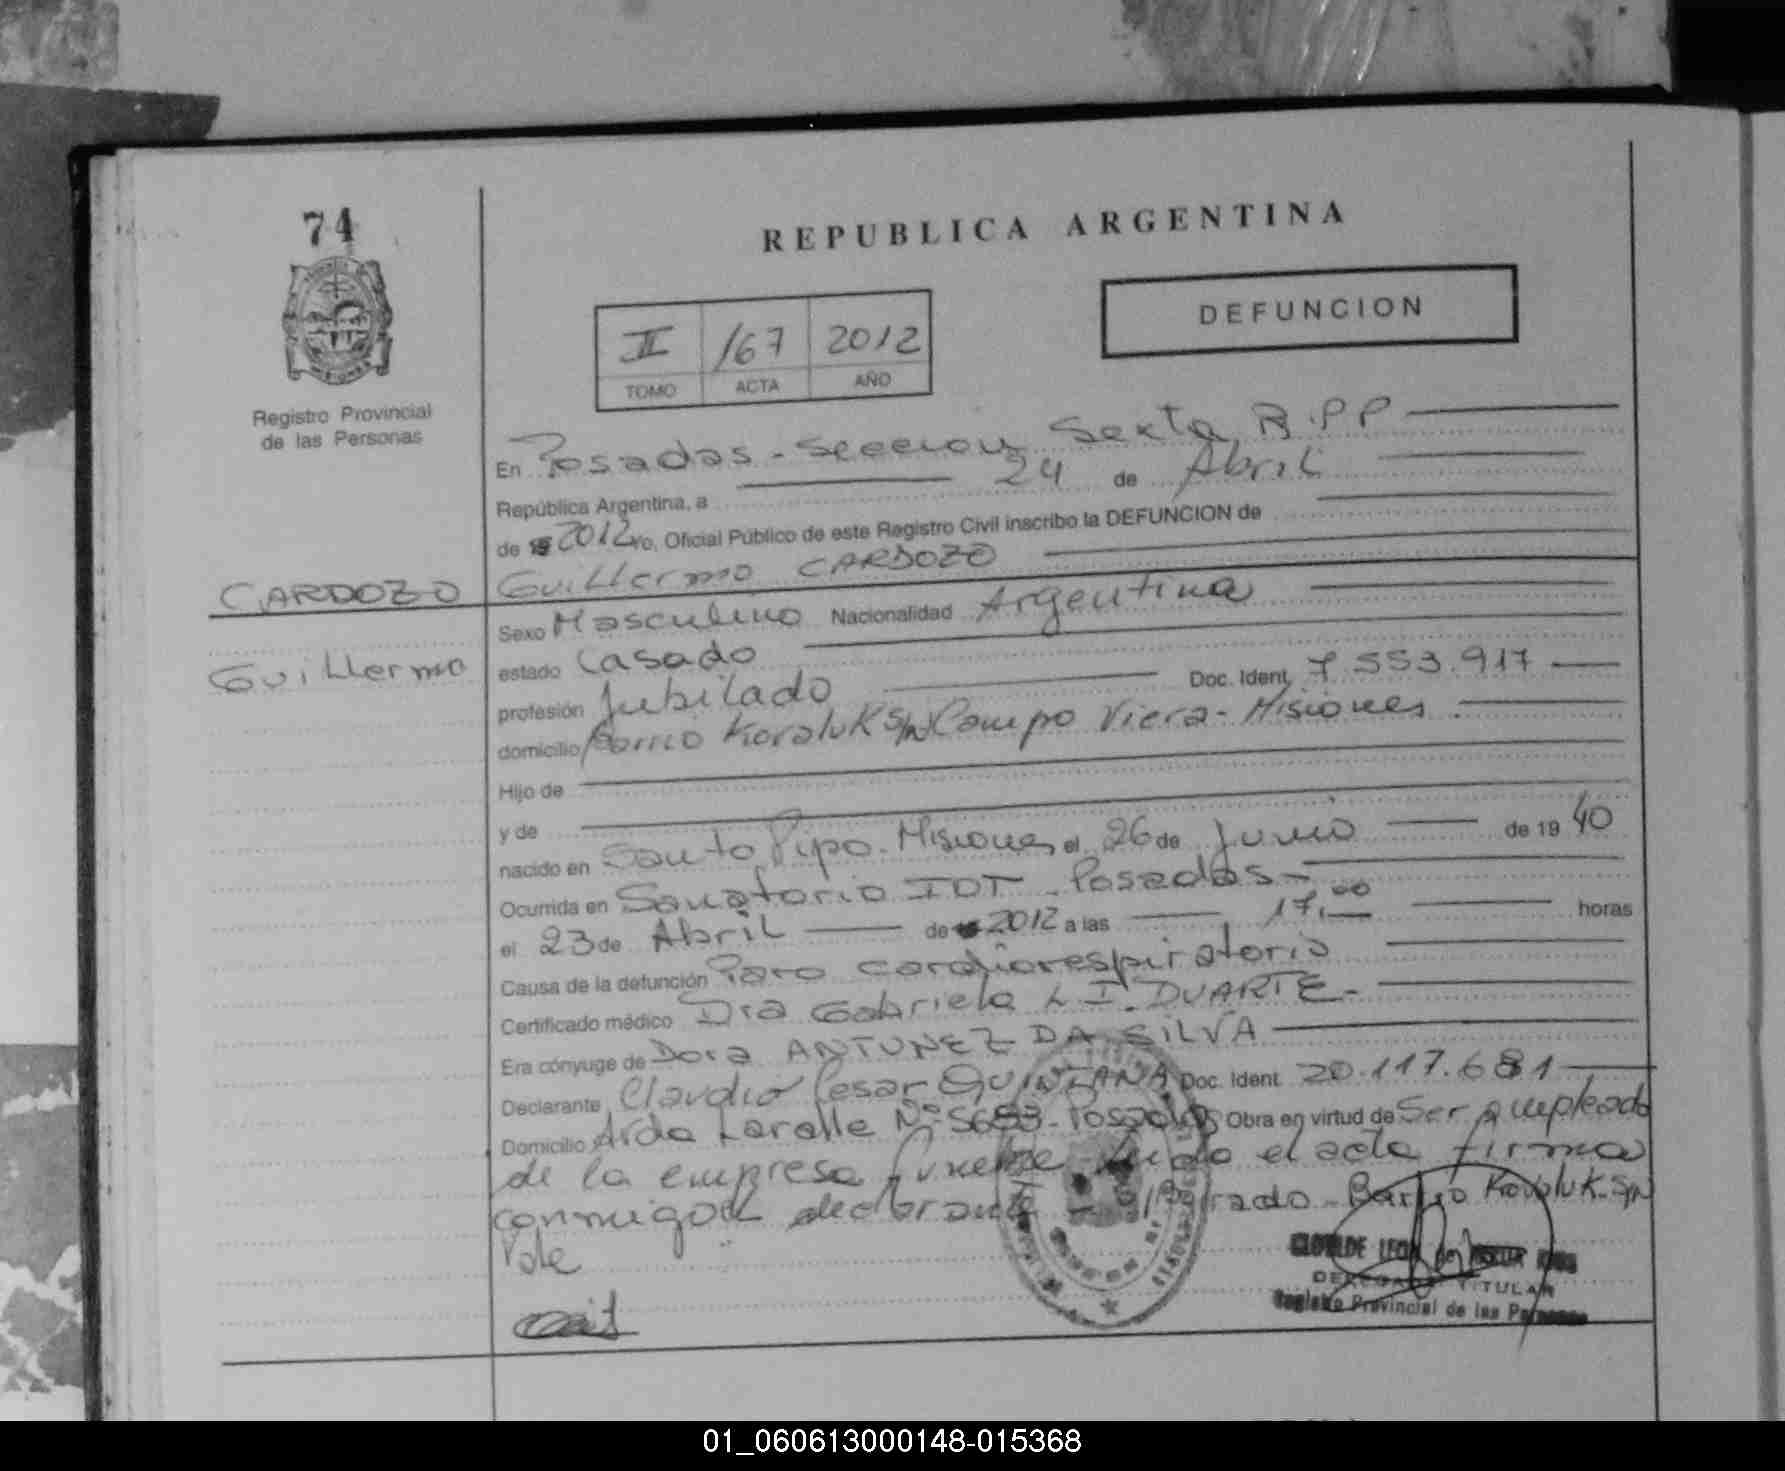 74
Registro Provincial
de las Personas
REPUBLICA ARGENTINA
II /67 2012
TOMO ACTA AÑO
DEFUNCION
En Posadas - Seccion Sexta R.P.P
República Argentina, a 24 de Abril
de 19 2012 Yo, Oficial Público de este Registro Civil inscribo la DEFUNCION de
Guillermo CARDOZO
CARDOZO
Guillermo
Sexo Masculino Nacionalidad Argentina
estado Casado
profesión Jubilado Doc. Ident. 7.553.917
domicilio Barrio Koraluk S/N Campo Viera - Misiones
Hijo de
y de
nacido en Santo Pipo - Misiones el 26 de Junio de 19 40
Ocurrida en Sanatorio IOT - Posadas -
el 23 de Abril de 19 2012 a las 17,00 horas
Causa de la defunción Paro cardiorespiratorio
Certificado médico Dra Gabriela L I. DUARTE -
Era cónyuge de Dora ANTUNEZ DA SILVA
Declarante Claudio Cesar QUINTANA Doc. Ident. 20.117.681
Domicilio Avda Lavalle Nº 5683 - Posadas Obra en virtud de Ser empleado
de la empresa funebre el acta firma
conmigo el declarante - Barrio Kovaluk - S/N
Vale
DELEGADA TITULAR
Registro Provincial de las Personas
01_060613000148-015368